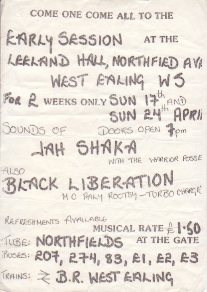 COME ONE COME ALL TO THE
EARLY SESSION AT THE
LEELAND HALL, NORTHFIELD AVE
WEST EALING W5
FOR 2 WEEKS ONLY SUN 17th AND
SUN 24th APRIL
SOUNDS OF DOORS OPEN 7pm
JAH SHAKA
WITH THE WARRIOR POSSE
ALSO
BLACK LIBERATION
M.C. ROOTSY - TURBO CHARGE
REFRESHMENTS AVAILABLE
MUSICAL RATE £1.50
TUBE: NORTHFIELDS AT THE GATE
BUSES: 207, 274, 83, E1, E2, E3
TRAINS: B.R. WEST EALING